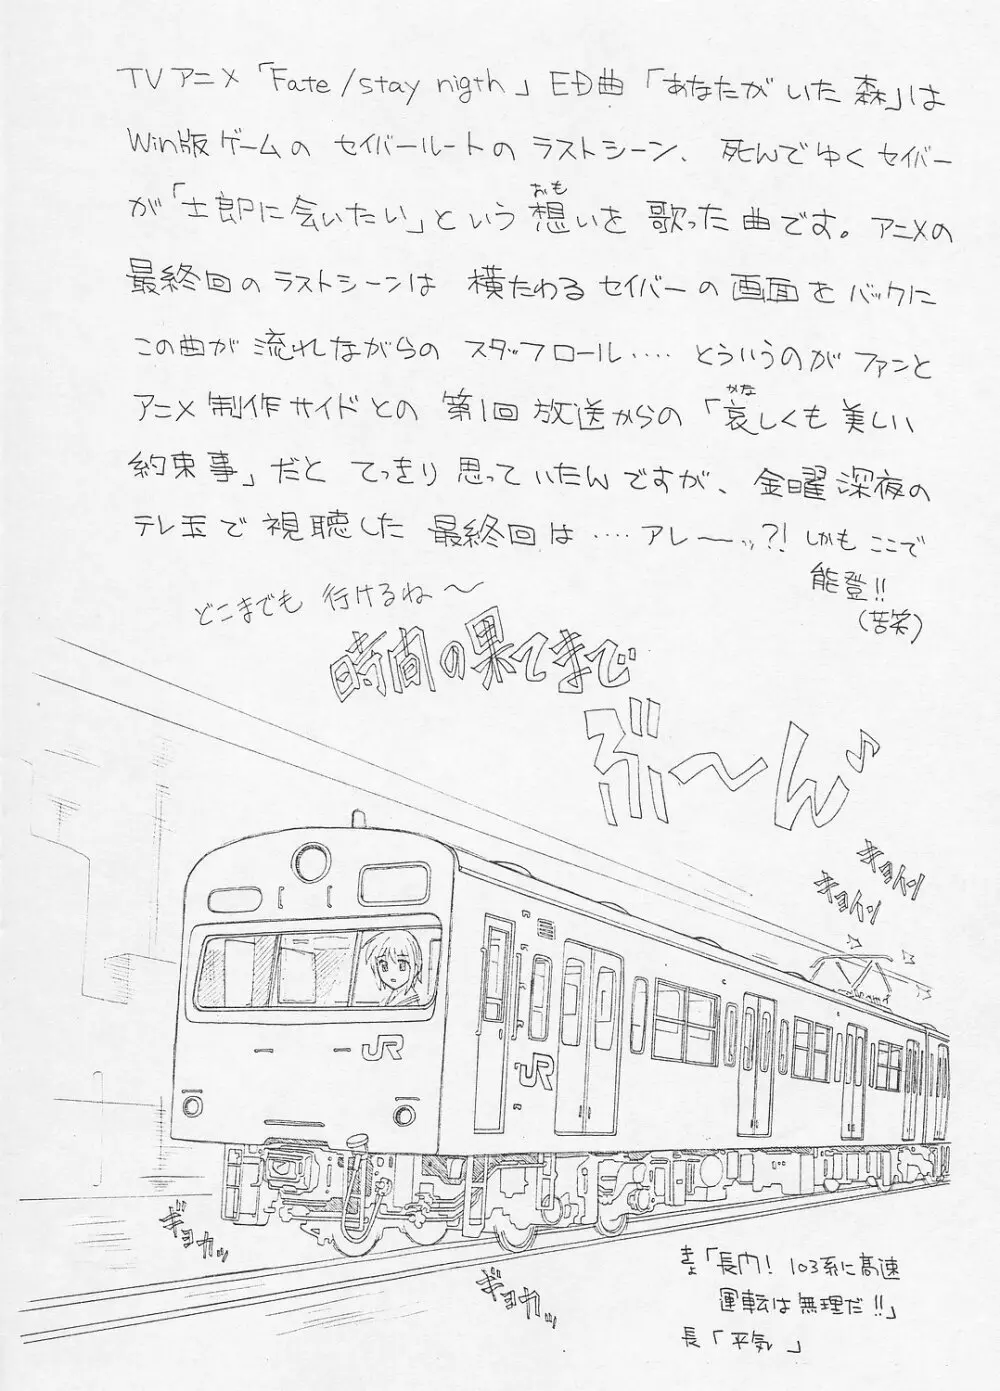 TVアニメ「Fate/stay nigth」ED曲「あなたがいた森」は
Win版ゲームの セイバールートの ラストシーン、 死んでゆくセイバー
が「士郎に会いたい」という 想いを 歌った曲です。アニメの
おも
最終回のラストシーンは 横たわるセイバーの画面をバックに
この曲が 流れながらの スタッフロール‥‥ とういうのが ファンと
アニメ制作サイドとの 第1回放送からの「哀しくも美しい
かな
約束事」だと てっきり思っていたんですが、金曜深夜の
テレ玉で視聴した 最終回は ‥‥ アレーッ?! しかもここで
能登!!
(苦笑)
どこまでも 行けるね〜
時間の果てまで
ぶ〜ん♪
ギョイン
ギョイン
JR
JR
ギョカッ
ギョカッ
「長門! 103系に高速
運転は無理だ!!」
長「平気」